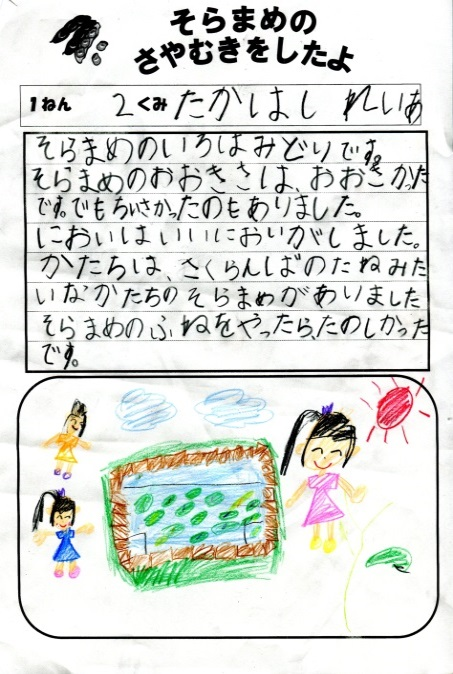 そらまめの
さやむきをしたよ
1ねん 2くみ たかはし れいあ
そらまめのいろはみどりです。
そらまめのおおきさは、おおきかった
です。でもちいさかったのもありました。
においはいいにおいがしました。
かたちは、さくらんぼのたねみた
いなかたちのそらまめがありました
そらまめのふねをやったら、たのしかった
です。